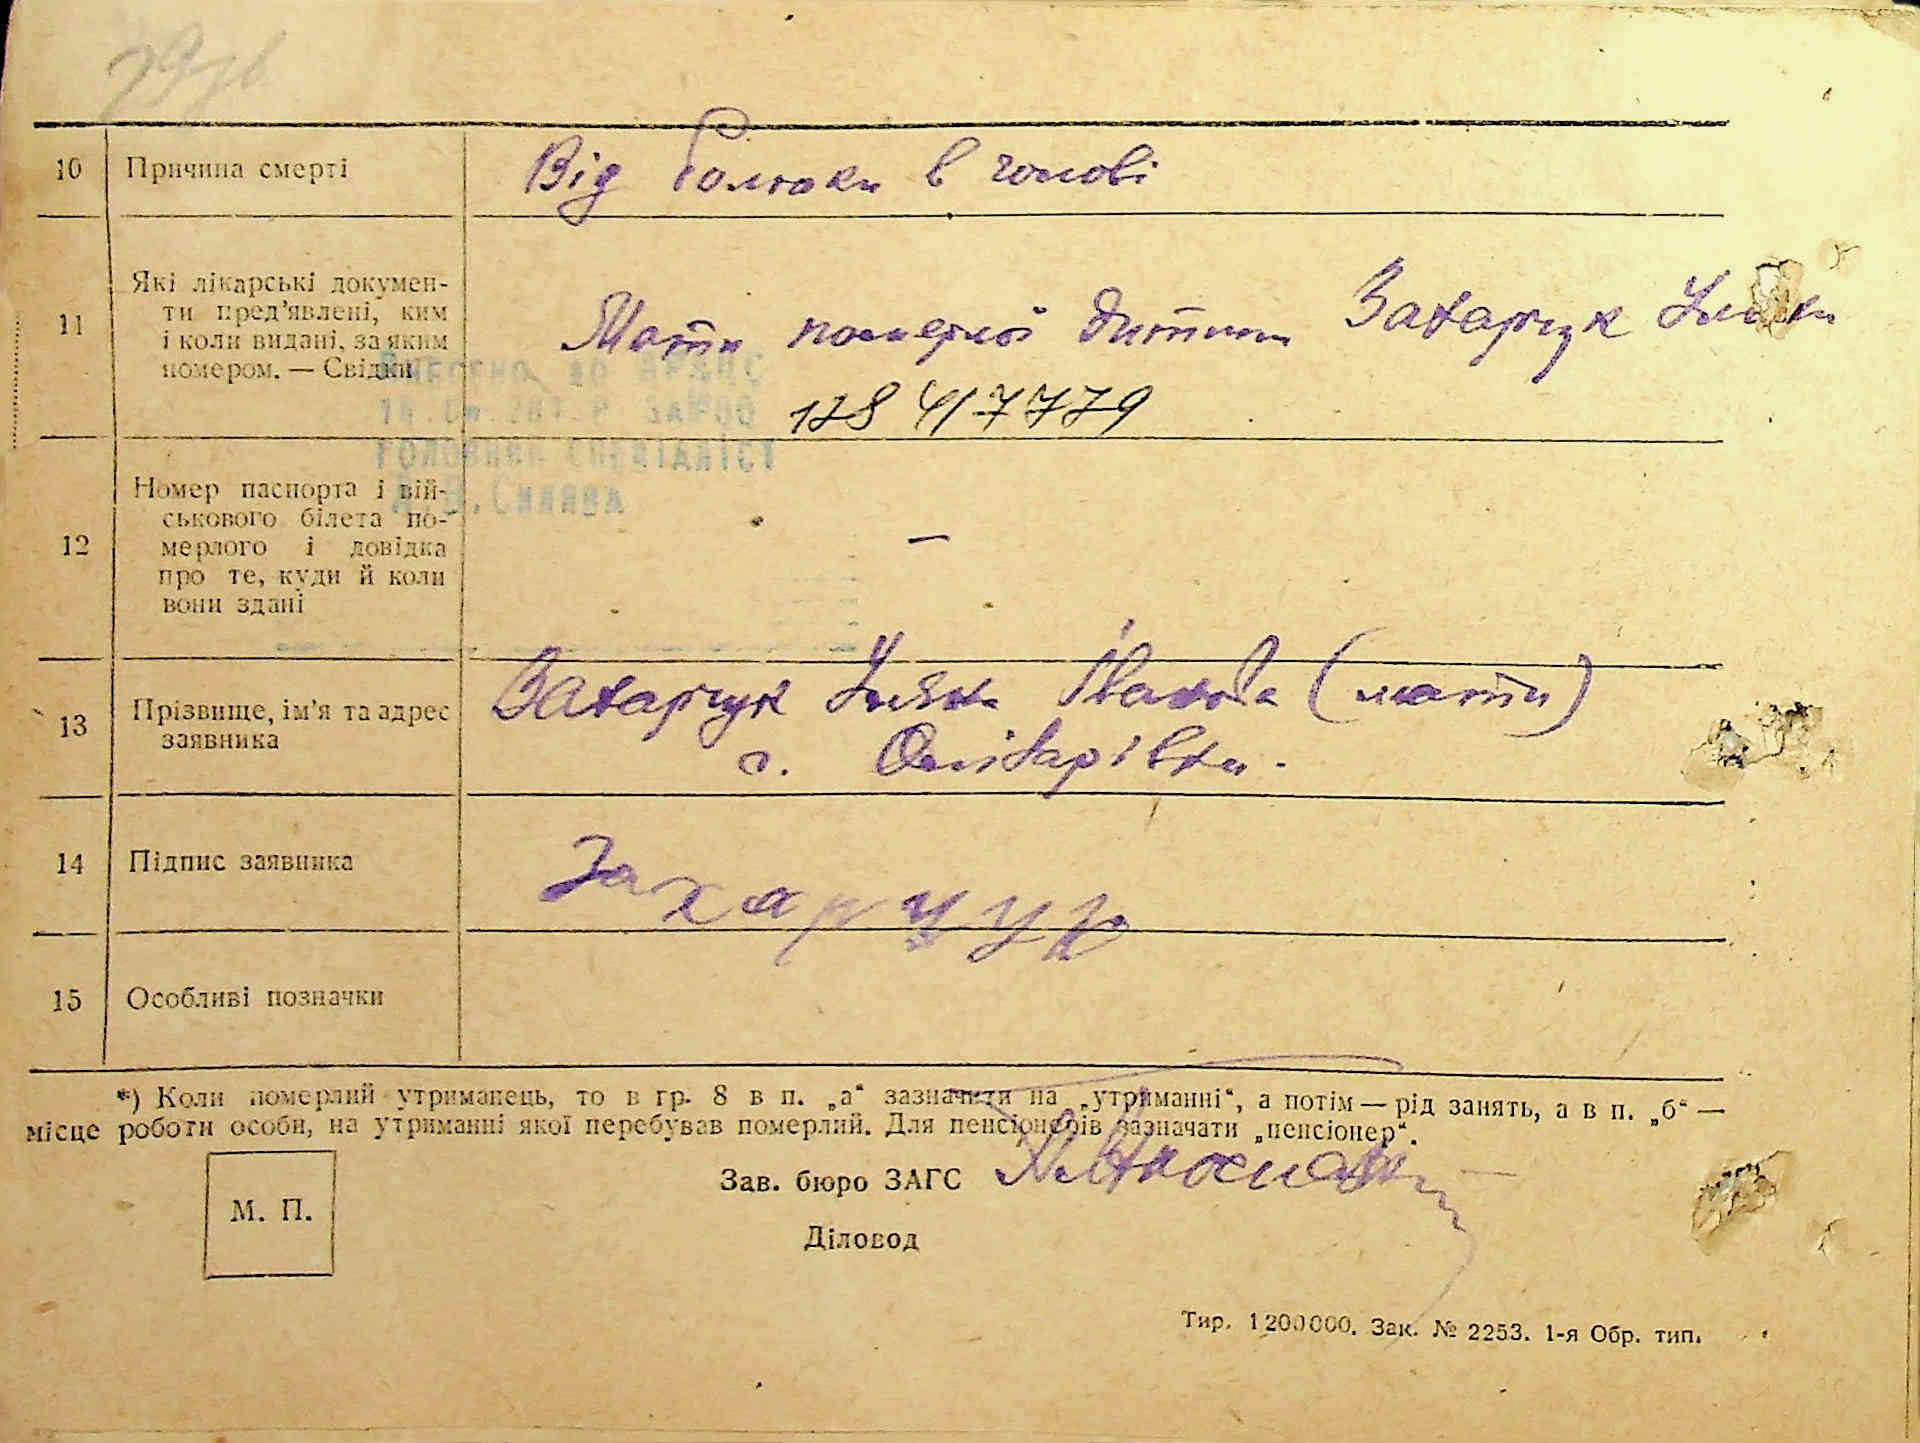 29зв
10 Причина смерті Від болячки в голові
11 Які лікарські докумен-
ти пред’явлені, ким
і коли видані, за яким
номером. — Свідки
Мати померлої дитини Захарчук Уляна
128 417779
ГОЛОВНИЙ СПЕЦІАЛІСТ
12 Номер паспорта і вій-
ськового білета по-
мерлого і довідка
про те, куди й коли
вони здані
—
13 Прізвище, ім’я та адрес
заявника
Захарчук Уляна Іванівна (мати)
с. Олізарівка.
14 Підпис заявника Захарчук
15 Особливі позначки
*) Коли померлий утриманець, то в гр. 8 в п. „а“ зазначити на „утриманні“, а потім — рід занять, а в п. „б“ —
місце роботи особи, на утриманні якої перебував померлий. Для пенсіонерів зазначати „пенсіонер“.
Зав. бюро ЗАГС
М. П.
Діловод
Тир. 1200000. Зак. № 2253. 1-я Обр. тип.